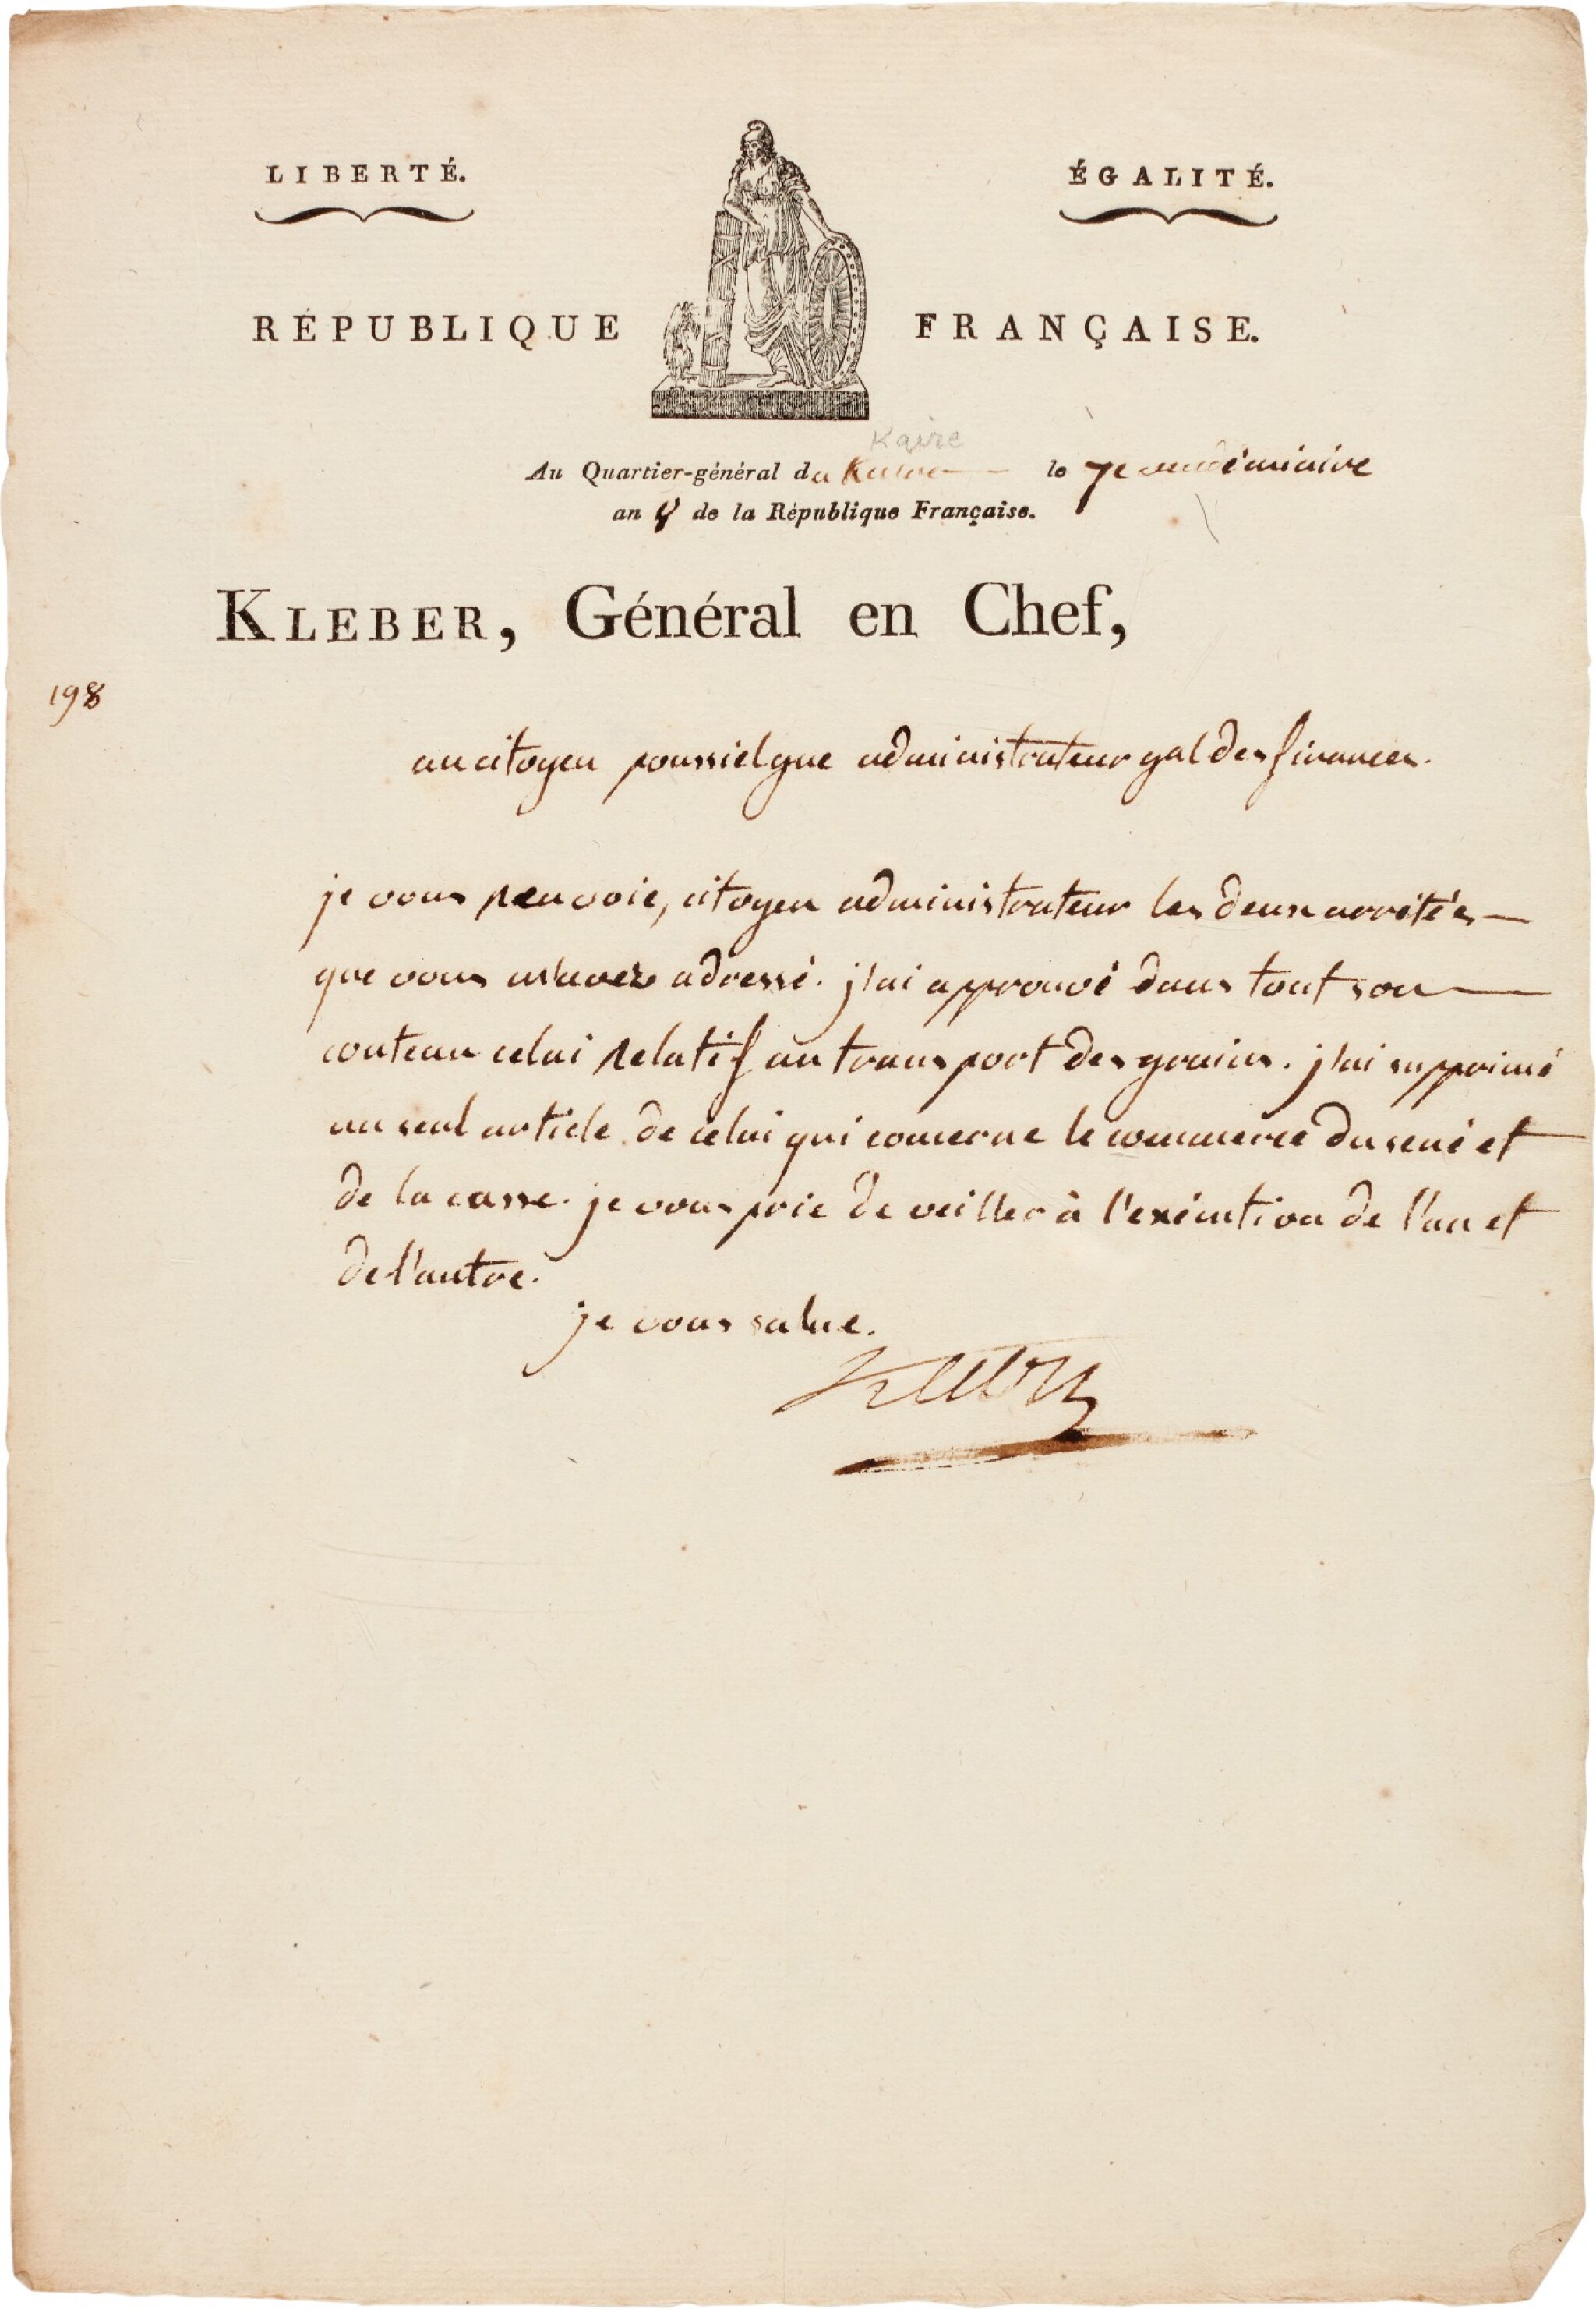 LIBERTÉ. ÉGALITÉ.
RÉPUBLIQUE FRANÇAISE.
Kaire
Au Quartier-général du Kaire le 7e vendémiaire
an 8 de la République Française.
KLEBER, Général en Chef,
198
au citoyen poussielgue administrateur gal des finances.
je vous renvoie, citoyen administrateur les deux arrêtés
que vous m'avez adressé. j'ai approuvé dans tout son
contenu celui relatif au transport des grains. j'ai supprimé
un seul article de celui qui concerne le commerce du sené et
de la casse. je vous prie de veiller à l'exécution de l'un et
de l'autre.
je vous salue.
Kleber